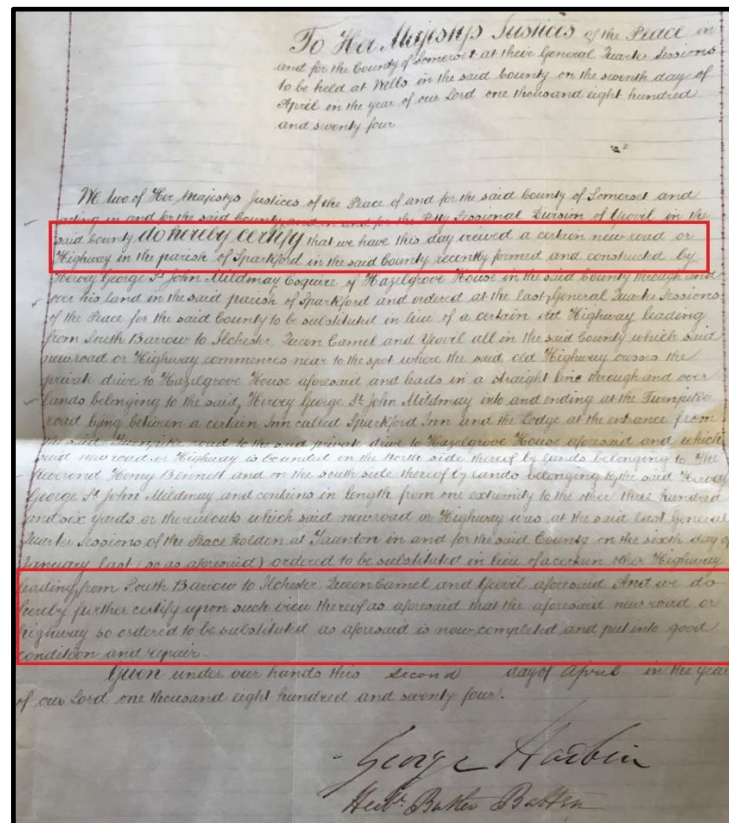 To Her Majestys Justices of the Peace in
and for the County of Somerset at their General Quarter Sessions
to be held at Wells in the said County on the seventh day of
April in the year of our Lord one thousand eight hundred
and seventy four
We two of Her Majestys Justices of the Peace of and for the said County of Somerset and
acting in and for the said County and in and for the Petty Sessional Division of Yeovil in the
said County do hereby certify that we have this day viewed a certain new road or
Highway in the parish of Sparkford in the said County recently formed and constructed by
Hervey George St John Mildmay Esquire of Hazelgrove House in the said County through and
over his land in the said parish of Sparkford and ordered at the last General Quarter Sessions
of the Peace for the said County to be substituted in lieu of a certain old Highway leading
from South Barrow to Ilchester Queen Camel and Yeovil all in the said County which said
new road or Highway commences near to the spot where the said old Highway crosses the
private drive to Hazelgrove House aforesaid and leads in a straight line through and over
lands belonging to the said, Hervey George St John Mildmay into and ending at the Turnpike
road lying between a certain Inn called Sparkford Inn and the Lodge at the entrance from
the said Turnpike road to the said private drive to Hazelgrove House aforesaid and which
said new road or Highway is bounded on the North side thereof by lands belonging to the
Reverend Henry Bennett and on the south side thereof by lands belonging to the said Hervey
George St John Mildmay and contains in length from one extremity to the other three hundred
and six yards or thereabouts which said new road or Highway was at the said last General
Quarter Sessions of the Peace holden at Taunton in and for the said County on the sixth day of
January last (so as aforesaid) ordered to be substituted in lieu of a certain other Highway
leading from South Barrow to Ilchester Queen Camel and Yeovil aforesaid And we do
hereby further certify upon such view thereof as aforesaid that the aforesaid new road or
highway so ordered to be substituted as aforesaid is now completed and put into good
condition and repair.
Given under our hands this second day of April in the year
of our Lord one thousand eight hundred and seventy four.
George Harbin
Batten